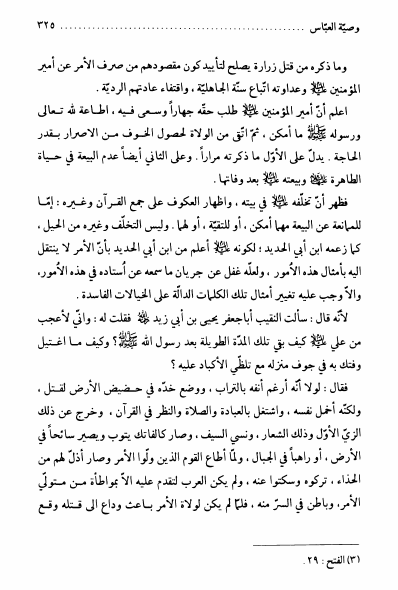 وصيّة العبّاس .................................................. ٣٢٥
وما ذكره من قتل زرارة يصلح لتأييد كون مقصودهم من صرف الأمر عن أمير
المؤمنين عليه السلام وعداوته اتّباع سنّة الجاهليّة ، واقتفاء عادتهم الرديّة .
اعلم أنّ أمير المؤمنين عليه السلام طلب حقّه جهاراً وسعى فيه ، اطاعة لله تعالى
ورسوله ﷺ ما أمكن ، ثمّ اتّقى من الولاة لحصول الخوف من الاصرار بقدر
الحاجة . يدلّ على الأوّل ما ذكرته مراراً . وعلى الثاني أيضاً عدم البيعة في حياة
الطاهرة عليها السلام وبيعته عليه السلام بعد وفاتها .
فظهر أنّ تخلّفه عليه السلام في بيته ، واظهار العكوف على جمع القرآن وغيره : إمّا
للممانعة عن البيعة مهما أمكن ، أو للتقيّة ، أو لهما . وليس التخلّف وغيره من الحيل ،
كما زعمه ابن أبي الحديد ؛ لكونه عليه السلام أعلم من ابن أبي الحديد بأنّ الأمر لا ينتقل
اليه بأمثال هذه الأُمور ، ولعلّه غفل عن جريان ما سمعه عن أُستاده في هذه الأُمور،
والاّ وجب عليه تغيير أمثال تلك الكلمات الدالّة على الخيالات الفاسدة .
لأنّه قال : سألت النقيب أباجعفر يحيى بن أبي زيد فقلت له : وانّي لأعجب
من علي عليه السلام كيف بقي تلك المدّة الطويلة بعد رسول الله ﷺ ؟ وكيف ما اغتيل
وفتك به في جوف منزله مع تلظّي الأكباد عليه ؟
فقال : لولا أنّه أرغم أنفه بالتراب ، ووضع خدّه في حضيض الأرض لقتل ،
ولكنّه أخمل نفسه ، واشتغل بالعبادة والصلاة والنظر في القرآن ، وخرج عن ذلك
الزيّ الأوّل وذلك الشعار ، ونسي السيف ، وصار كالفاتك يتوب ويصير سائحاً في
الأرض ، أو راهباً في الجبال ، ولمّا أطاع القوم الذين ولّوا الأمر وصار أذلّ لهم من
الحذاء ، تركوه وسكتوا عنه ، ولم يكن العرب لتقدم عليه الاّ بمواطأة من متولّي
الأمر، وباطن في السرّ منه ، فلمّا لم يكن لولاة الأمر باعث وداع الى قتله وقع
(٣) الفتح : ٢٩ .